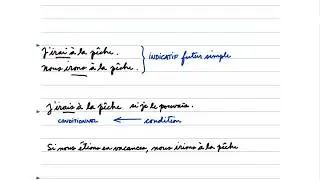 J'irai à la pêche.
Nous irons à la pêche.
INDICATIF futur simple
J'irais à la pêche si je le pouvais.
CONDITIONNEL condition
Si nous étions en vacances, nous irions à la pêche